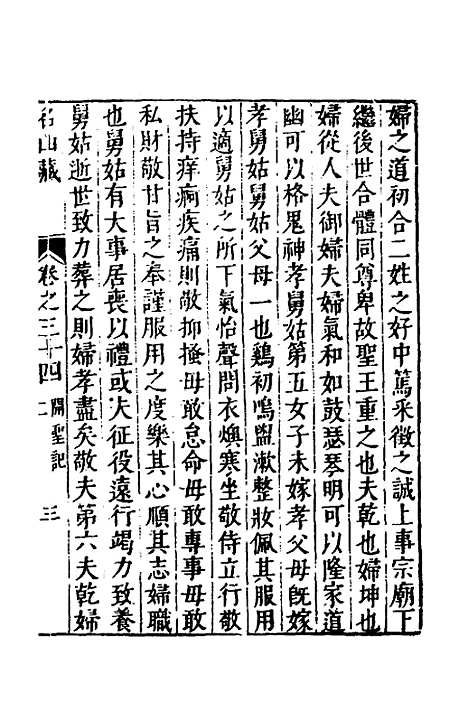 婦之道初合二姓之好中篤采徵之誠上事宗廟下
繼後世合體同尊卑故聖王重之也夫乾也婦坤也
婦從人夫御婦夫婦氣和如鼓瑟琴明可以隆家道
幽可以格鬼神孝舅姑第五女子未嫁孝父母旣嫁
孝舅姑舅姑父母一也鷄初鳴盥漱整妝佩其服用
以適舅姑之所下氣怡聲問衣燠寒坐敬侍立行敬
扶持痒痾疾痛則敬抑搔毋敢怠命毋敢專事毋敢
私財敬甘旨之奉謹服用之度樂其心順其志婦職
也舅姑有大事居喪以禮或夫征役遠行竭力致養
舅姑逝世致力葬之則婦孝盡矣敬夫第六夫乾婦
名山藏 卷之三十四 開聖記二 三